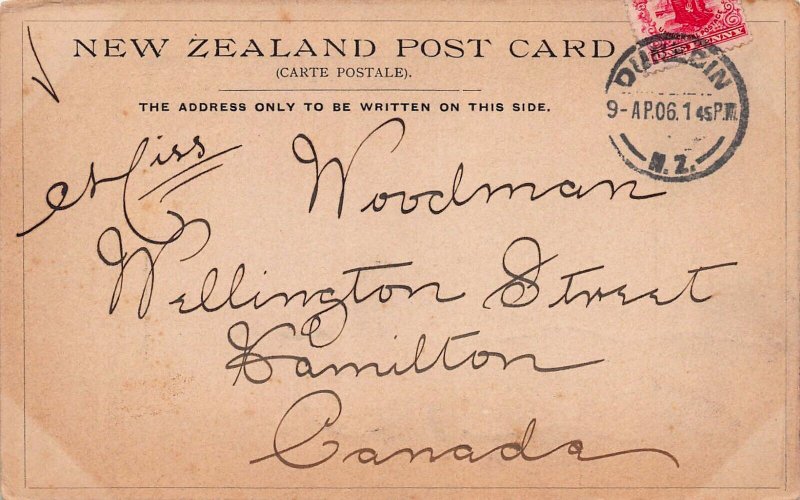 NEW ZEALAND POST CARD
(CARTE POSTALE).
THE ADDRESS ONLY TO BE WRITTEN ON THIS SIDE.
ONE PENNY
DUNEDIN
9-AP.06.1 45P.M.
N.Z.
Miss Woodman
Wellington Street
Hamilton
Canada